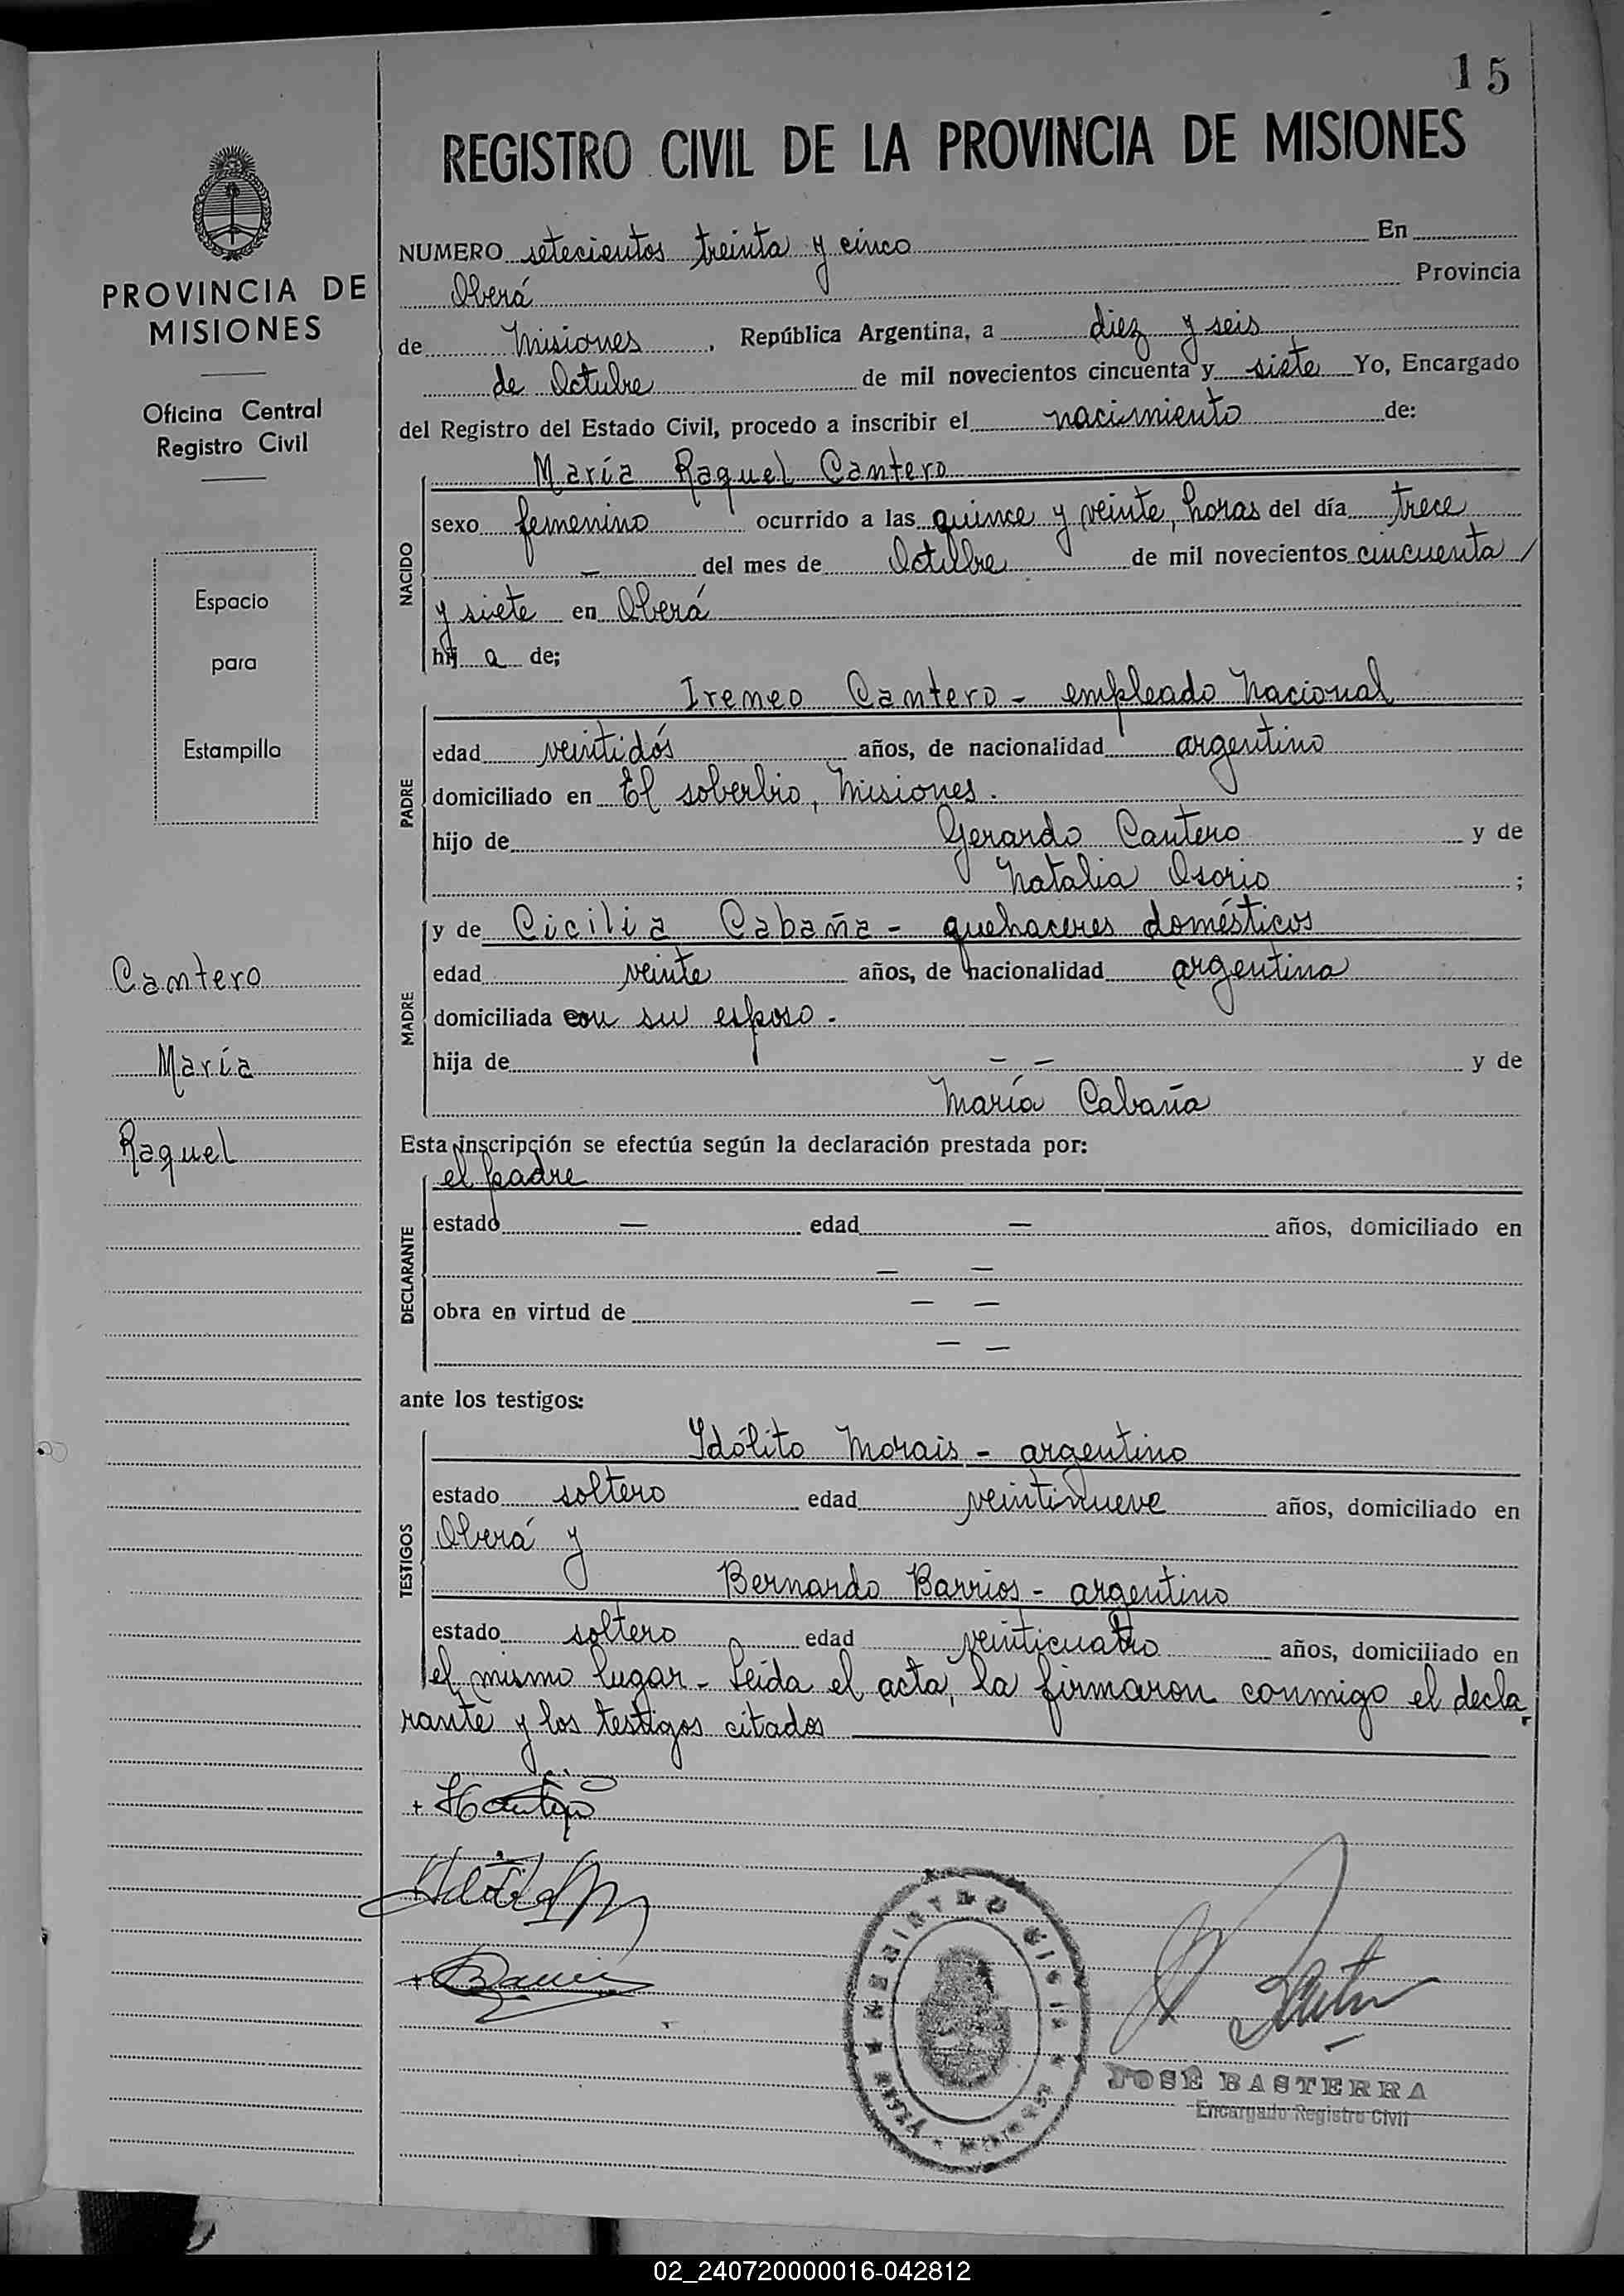 15
REGISTRO CIVIL DE LA PROVINCIA DE MISIONES
PROVINCIA DE
MISIONES
Oficina Central
Registro Civil
Espacio
para
Estampilla
Cantero
María
Raquel
NUMERO setecientos treinta y cinco En
Oberá Provincia
de Misiones, República Argentina, a diez y seis
de Octubre de mil novecientos cincuenta y siete Yo, Encargado
del Registro del Estado Civil, procedo a inscribir el nacimiento de:
María Raquel Cantero
NACIDO
sexo femenino ocurrido a las quince y veinte, horas del día trece
— del mes de Octubre de mil novecientos cincuenta /
y siete en Oberá
hij a de;
Ireneo Cantero - empleado Nacional
PADRE
edad veintidós años, de nacionalidad argentino
domiciliado en El soberbio, Misiones.
hijo de Gerardo Cantero y de
Natalia Osorio ;
y de Cicilia Cabaña - quehaceres domésticos
MADRE
edad veinte años, de nacionalidad argentina
domiciliada con su esposo -
hija de — — y de
María Cabaña
Esta inscripción se efectúa según la declaración prestada por:
el padre
DECLARANTE
estado — edad — años, domiciliado en
— —
obra en virtud de — —
— —
ante los testigos:
Idólito Morais - argentino
TESTIGOS
estado soltero edad veintinueve años, domiciliado en
Oberá y
Bernardo Barrios - argentino
estado soltero edad veinticuatro años, domiciliado en
el mismo lugar - Leída el acta, la firmaron conmigo el decla
rante y los testigos citados
REGISTRO CIVIL
OBERA
MISIONES
JOSE BASTERRA
Encargado Registro Civil
02_240720000016-042812